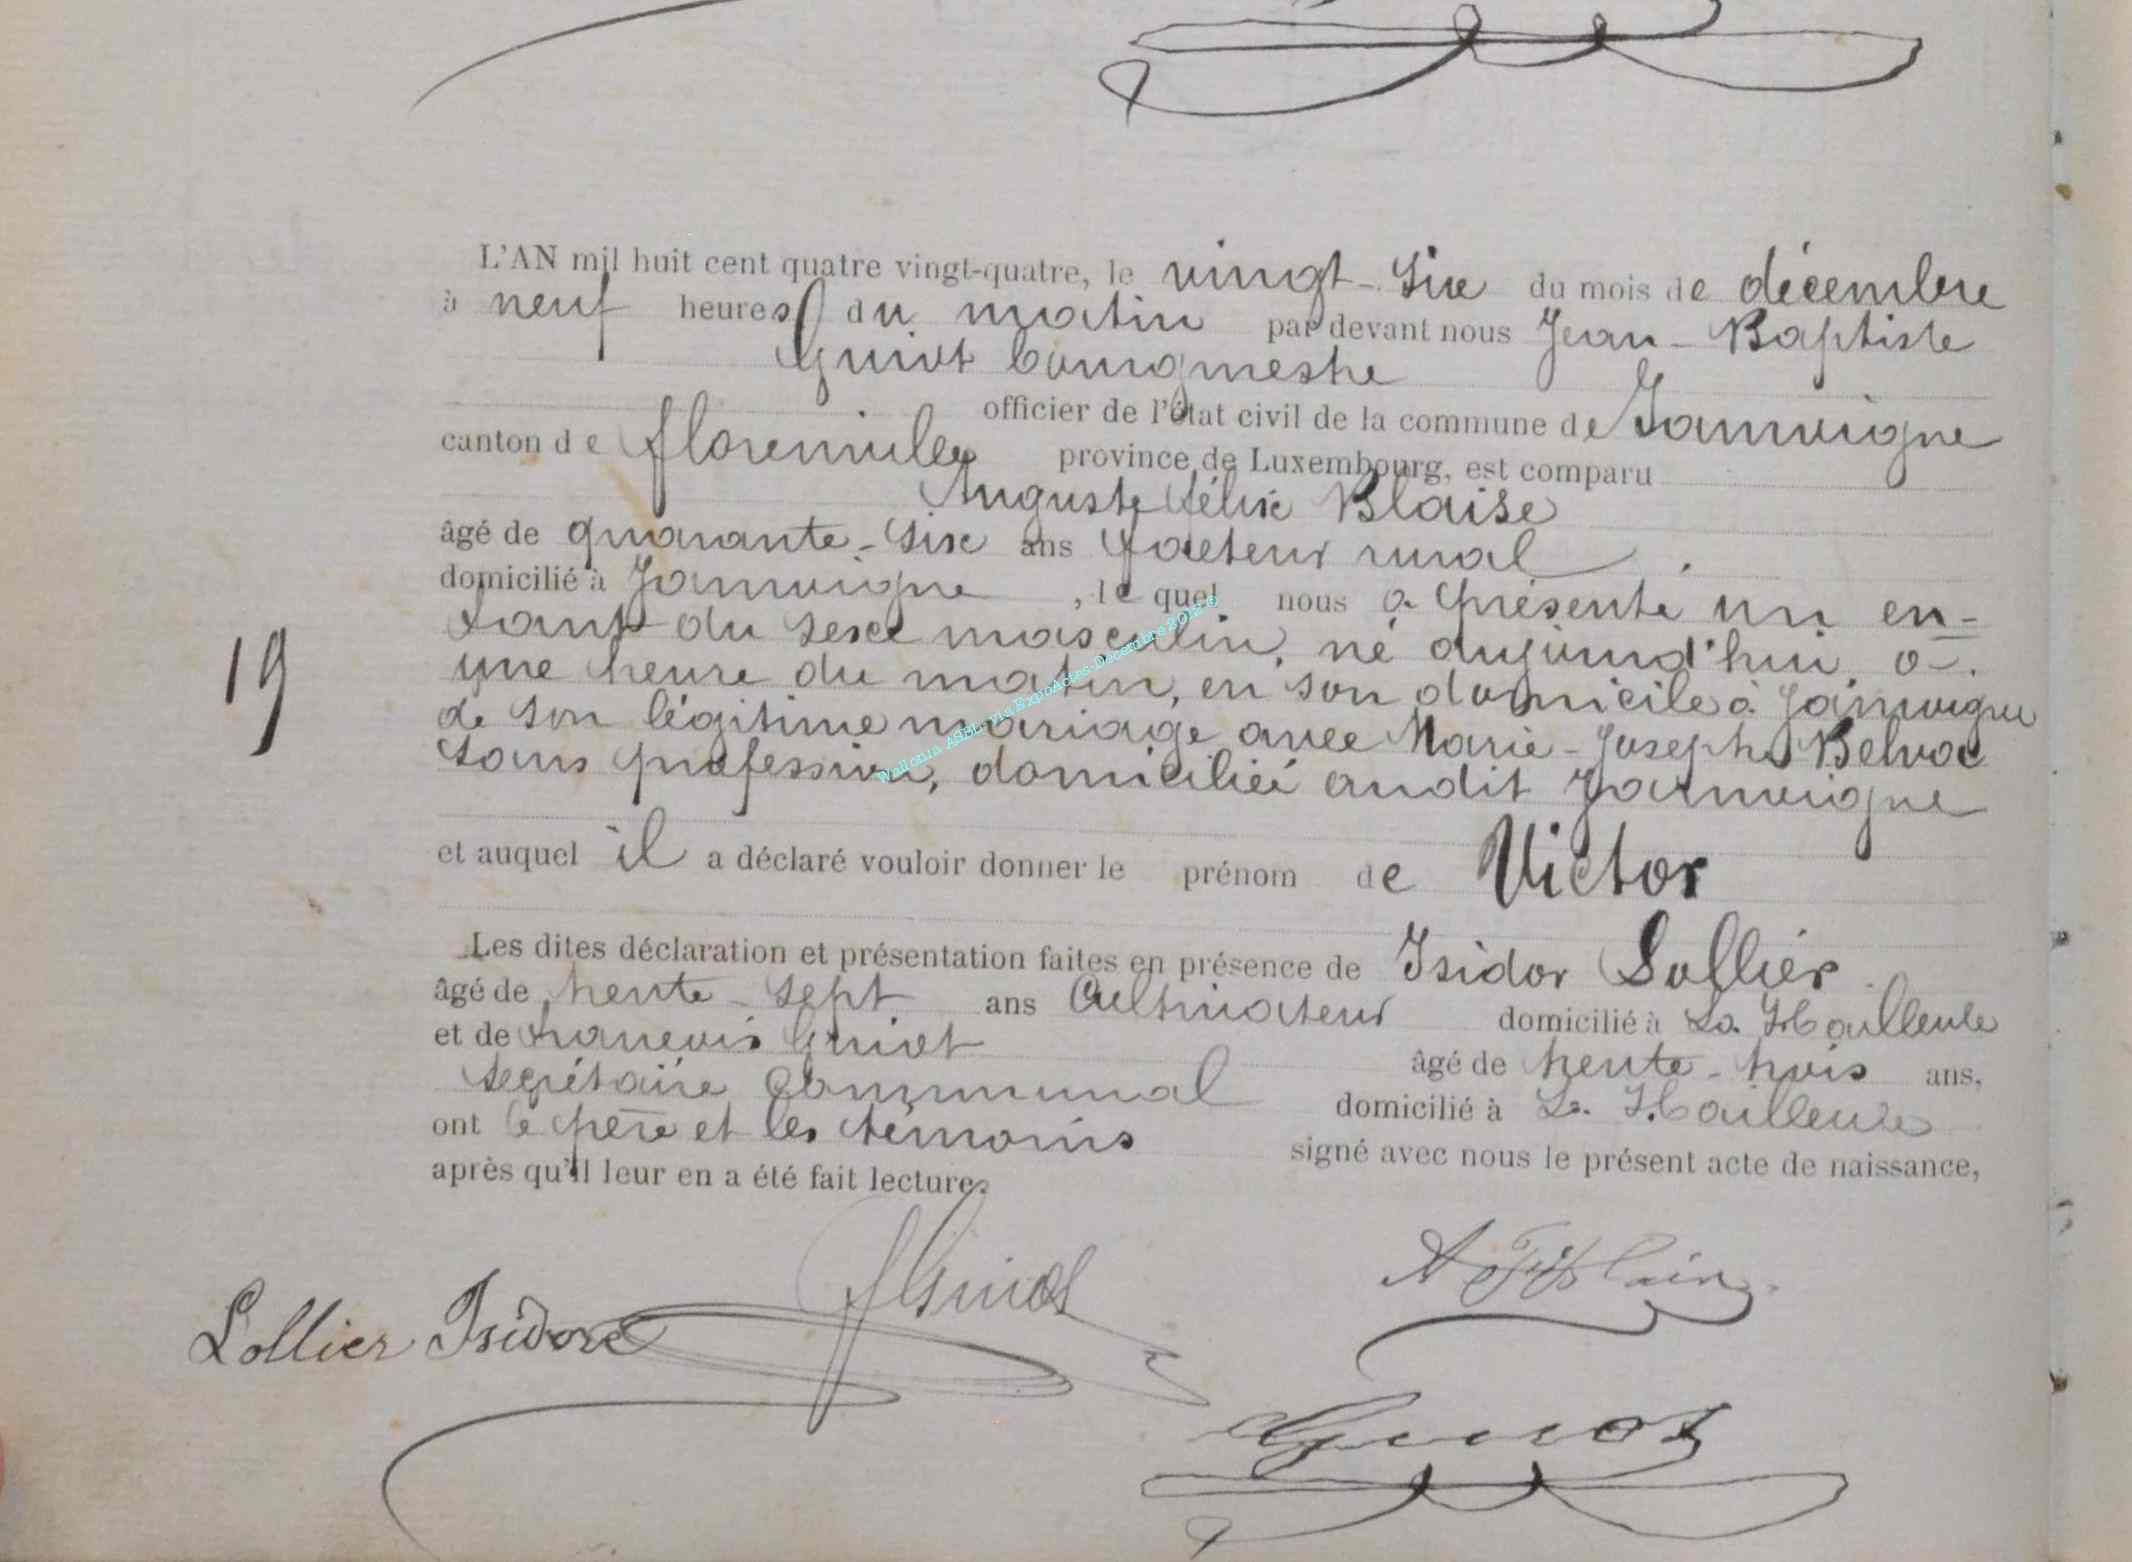 L'AN mil huit cent quatre vingt-quatre, le vingt-six du mois de décembre
à neuf heures du matin par devant nous Jean-Baptiste
Guiot bourgmestre
officier de l'état civil de la commune de Jamoigne
canton de florenville province de Luxembourg, est comparu
Auguste félix Blaise
âgé de quarante-six ans facteur rural
domicilié à Jamoigne, lequel nous a présenté un en-
fant du sexe masculin, né aujourd'hui, à
une heure du matin, en son domicile à Jamoigne
de son légitime mariage avec Marie-Josephe Belvoe
sans profession, domiciliée audit Jamoigne
19
et auquel il a déclaré vouloir donner le prénom de Victor
Les dites déclaration et présentation faites en présence de Isidor Lollier
âgé de trente-sept ans Cultivateur domicilié à La Hailleule
et de francois Guiot âgé de trente-trois ans,
secrétaire communal domicilié à La Hailleule
ont le père et les témoins signé avec nous le présent acte de naissance,
après qu'il leur en a été fait lecture.
Lollier Isidore
fGuiot
Guiot
Wallonia ASBL via ExpoActes Décembre